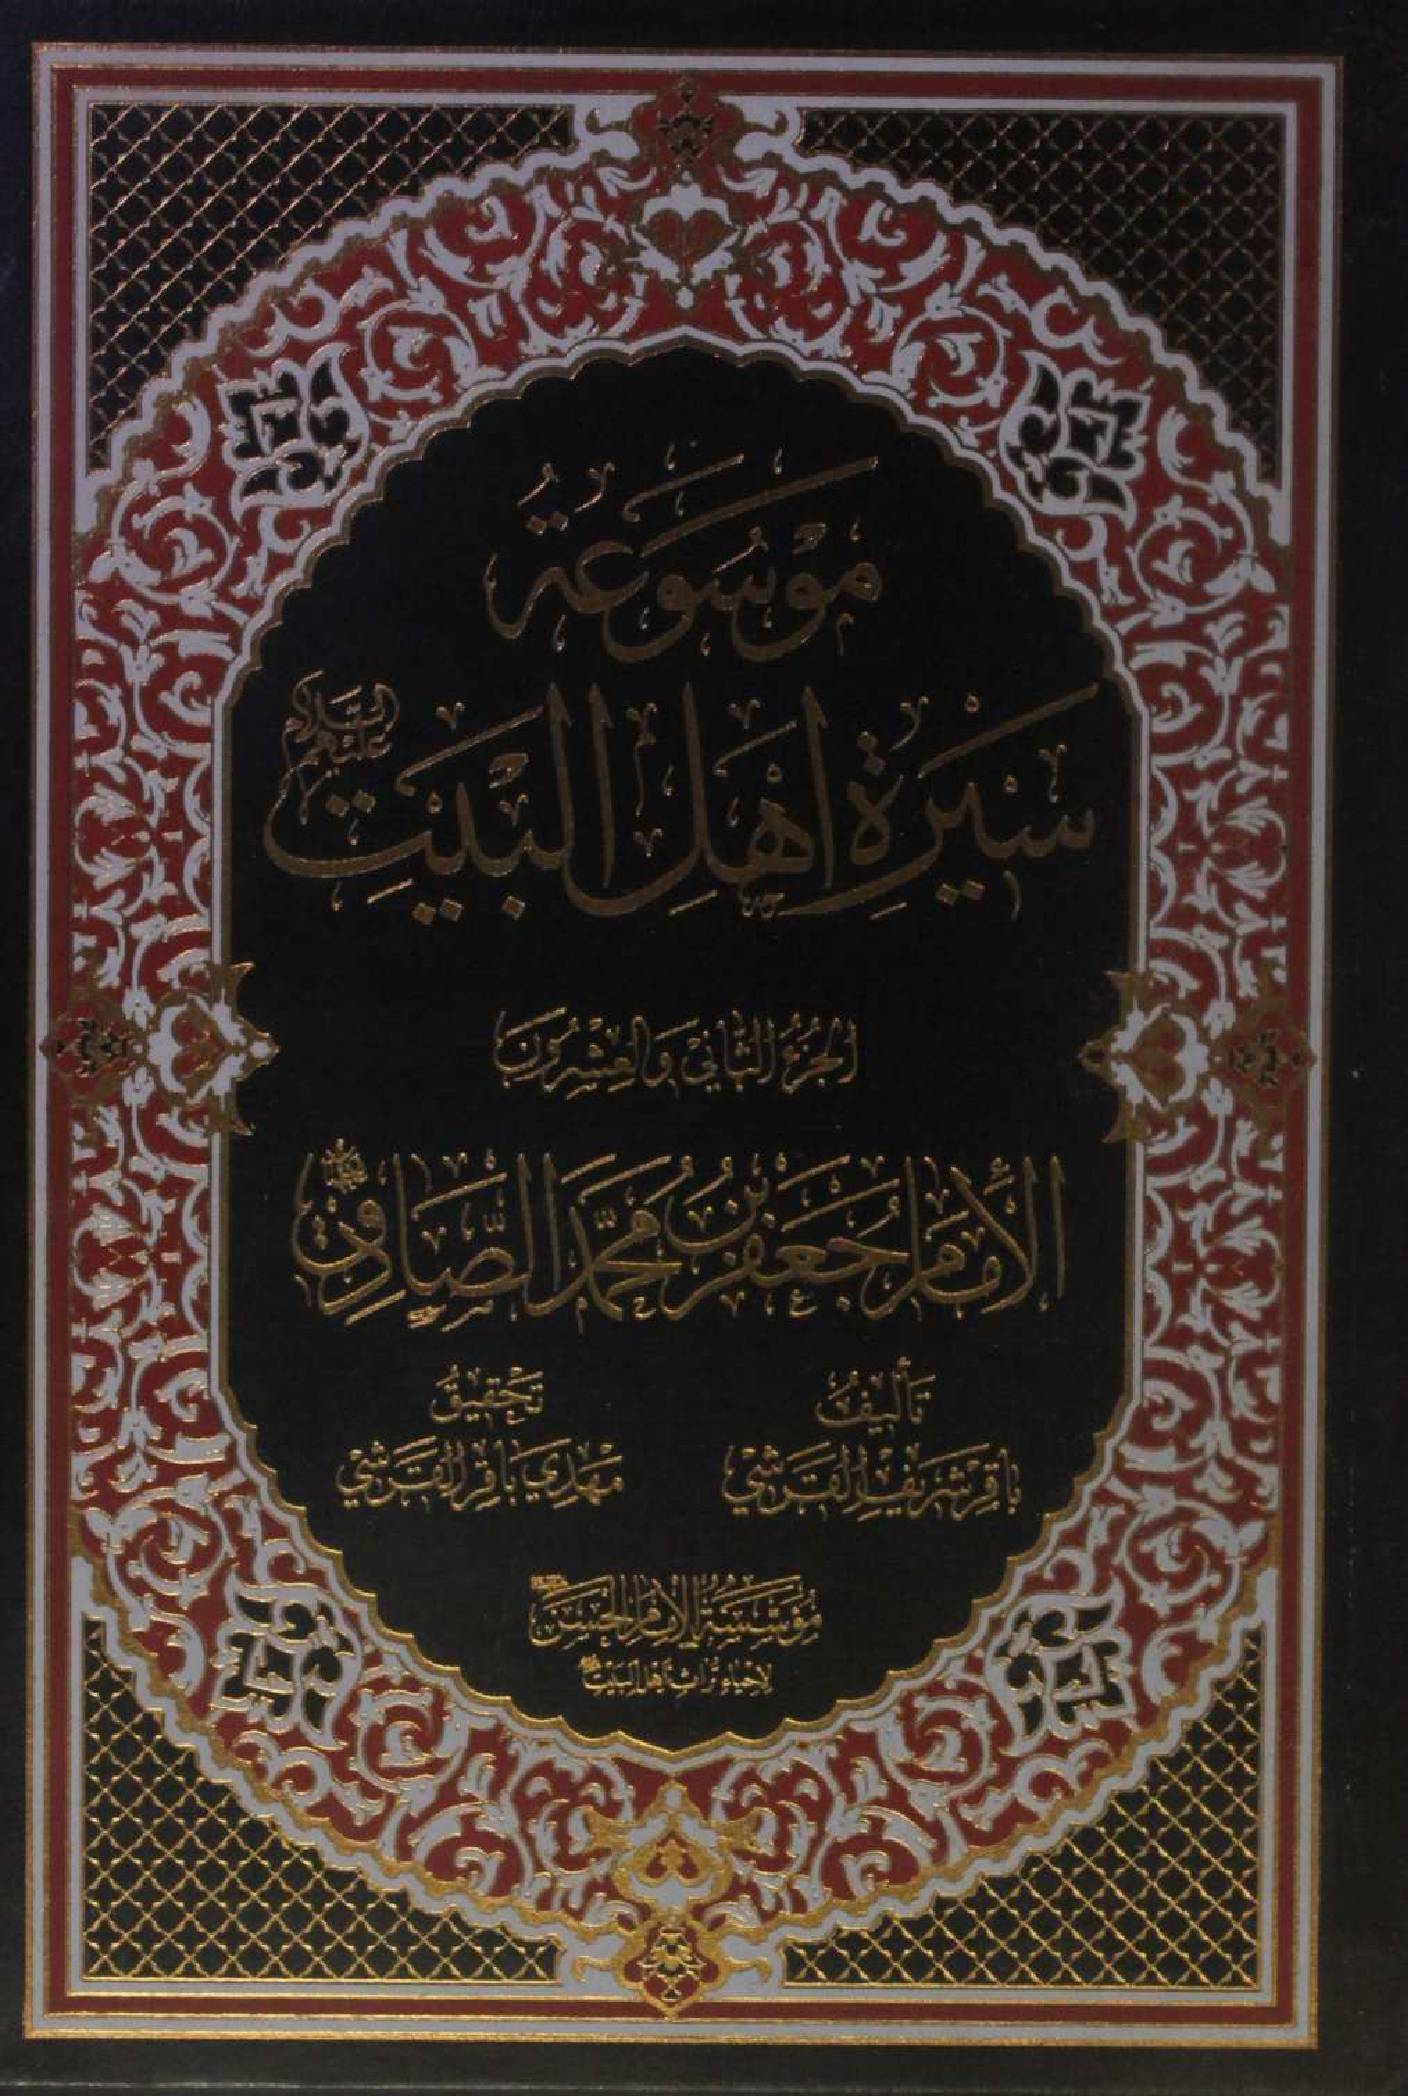 مَوْسُوعَةُ
سِيرَةِ اَهْلِ الْبَيْتِ عَلَيْهِمُ السَّلَام
الجُزْءُ الثَّانِي وَالعِشْرُونَ
الْإِمَامُ جَعْفَرُ بْنُ مُحَمَّدٍ الصَّادِقُ
تَأْلِيفُ
بَاقِر شَرِيفِ القَرَشِي
تَحْقِيقُ
مَهْدِي بَاقِر القَرَشِي
مُؤَسَّسَةُ الإِمَامِ الحَسَن
لِإحْيَاءِ تُرَاثِ أَهْلِ البَيْت